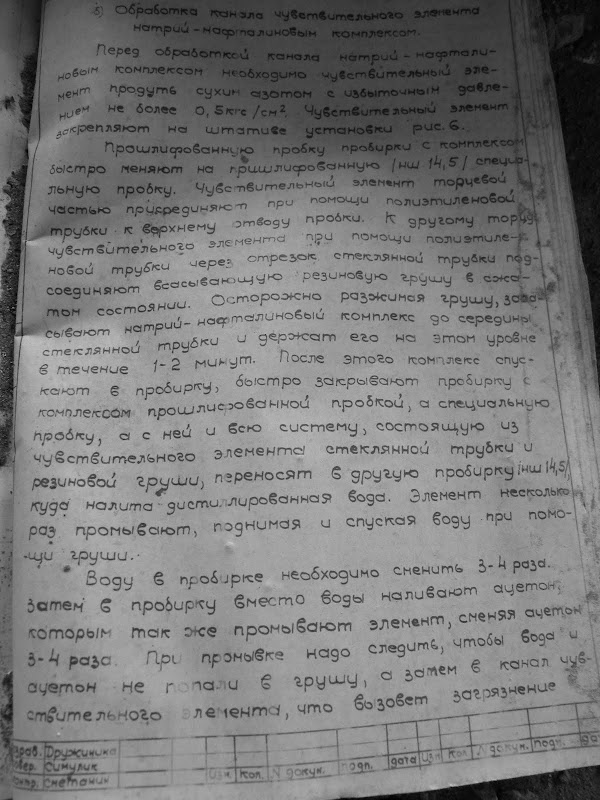 5) Обработка канала чувствительного элемента
натрий-нафталиновым комплексом.
Перед обработкой канала натрий-нафтали-
новым комплексом необходимо чувствительный эле-
мент продуть сухим азотом с избыточным давле-
нием не более 0,5кгс/см². Чувствительный элемент
закрепляют на штативе установки рис. 6.
Прошлифованную пробку пробирки с комплексом
быстро меняют на пришлифованную /нш 14,5/ специа-
льную пробку. Чувствительный элемент торцевой
частью присрединяют при помощи полиэтиленовой
трубки к верхнему отводу пробки. К другому торцу
чувствительного элемента при помощи полиэтиле-
новой трубки через отрезок стеклянной трубки под-
соединяют всасывающую резиновую грушу в сжа-
том состоянии. Осторожно разжимая грушу, заса-
сывают натрий-нафталиновый комплекс до середины
стеклянной трубки и держат его на этом уровне
в течение 1-2 минут. После этого комплекс спус-
кают в пробирку, быстро закрывают пробирку с
комплексом прошлифованной пробкой, а специальную
пробку, а с ней и всю систему, состоящую из
чувствительного элемента стеклянной трубки и
резиновой груши, переносят в другую пробирку /нш 14,5/
куда налита дистиллированная вода. Элемент несколько
раз промывают, поднимая и спуская воду при помо-
щи груши.
Воду в пробирке необходимо сменить 3-4 раза.
Затем в пробирку вместо воды наливают ацетон,
которым так же промывают элемент, сменяя ацетон
3-4 раза. При промывке надо следить, чтобы вода и
ацетон не попали в грушу, а затем в канал чув-
ствительного элемента, что вызовет загрязнение
Дружинина
Симулик
Сметанин
изм кол. N докум. подп. дата изм кол N докум. подп. дата